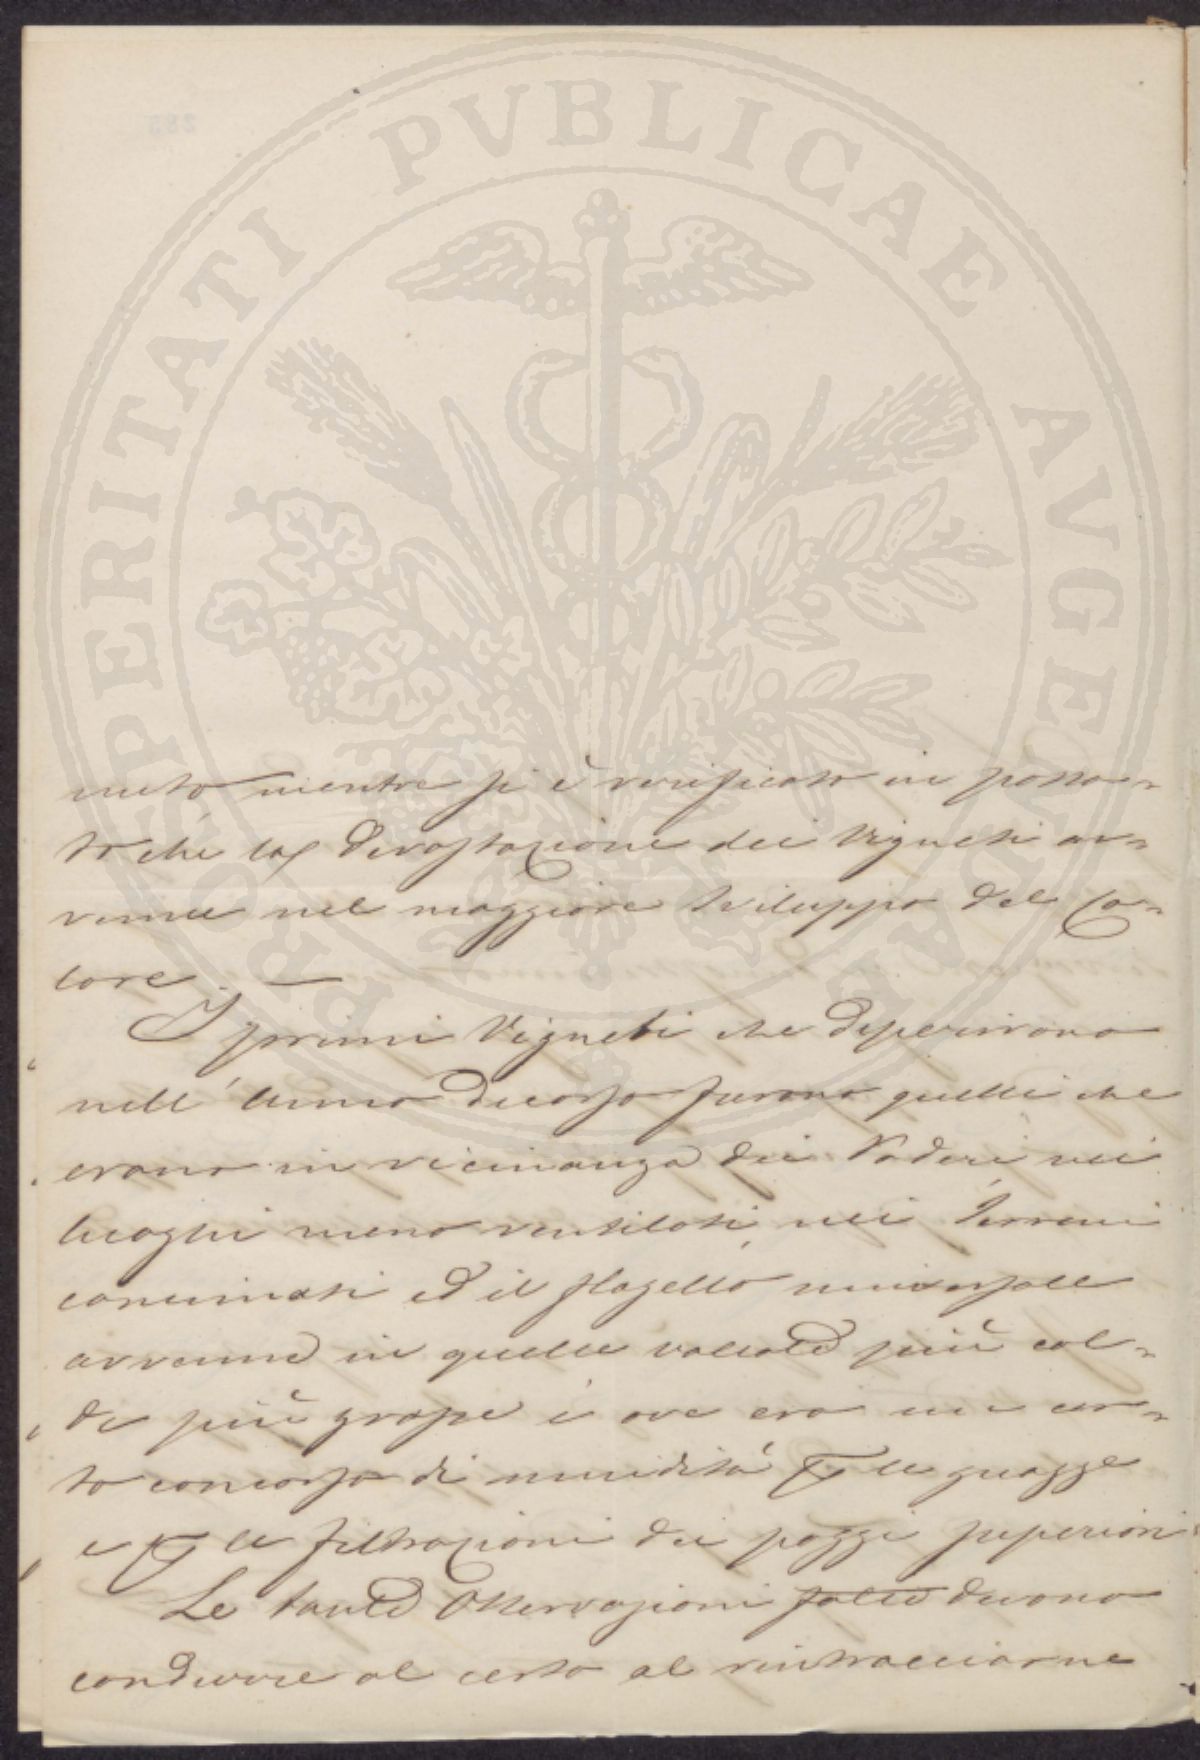 PROSPERITATI PVBLICAE AVGENDAE
mento mentre si è verificato in passa-
to che la devastazione dei Vigneti av-
venne nel maggiore sviluppo del Ca-
lore. —
I primi Vigneti che deperirono
nell'anno decorso furono quelli che
erano in vicinanza dei Poderi nei
luoghi meno ventilati, nei Terreni
concimati ed il flagello universale
avvenne in quelle vallate più cal-
de più grasse e ove era un cer-
to concorso di umidità le guazze
e le filtrazioni dei poggi superiori
Le tante Osservazioni fatte devono
condurre al certo al rintracciarne